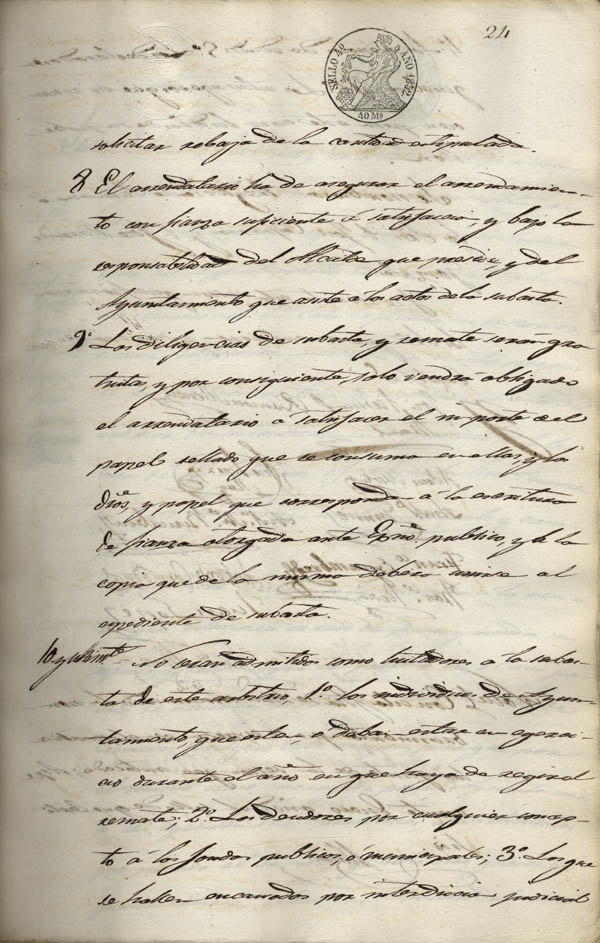 24
SELLO 4º AÑO 1852.
40 Ms
solicitar rebaja de la cantidad estipulada.
8ª El arrendatario ha de asegurar el arrendamien-
to con fianza suficiente á satisfacion, y bajo la
responsabilidad del Alcalde que presida, y del
Ayuntamiento que asiste á los actos de la subasta.
9ª Las diligencias de subasta, y remate serán gra-
tuitas, y por consiguiente, solo vendrá obligado
el arrendatario á satisfacer el importe del
papel sellado que se consuma en ellas, y los
dros, y papel que corresponda á la escritura
de fianza otorgada ante Esno publico, y de la
copia que de la misma deberá unirse al
espediente de subasta.
10 y ultima No seran admitidos como licitadores á la subas-
ta de este arbitrio, 1º los individuos de Ayun-
tamiento, que esten, ó deban estar en egerci-
cio durante el año en que haya de regir el
remate; 2º Los deudores por cualquier concep-
to á los fondos publicos, ó municipales; 3º Los que
se hallen encausados por interdiccion judicial